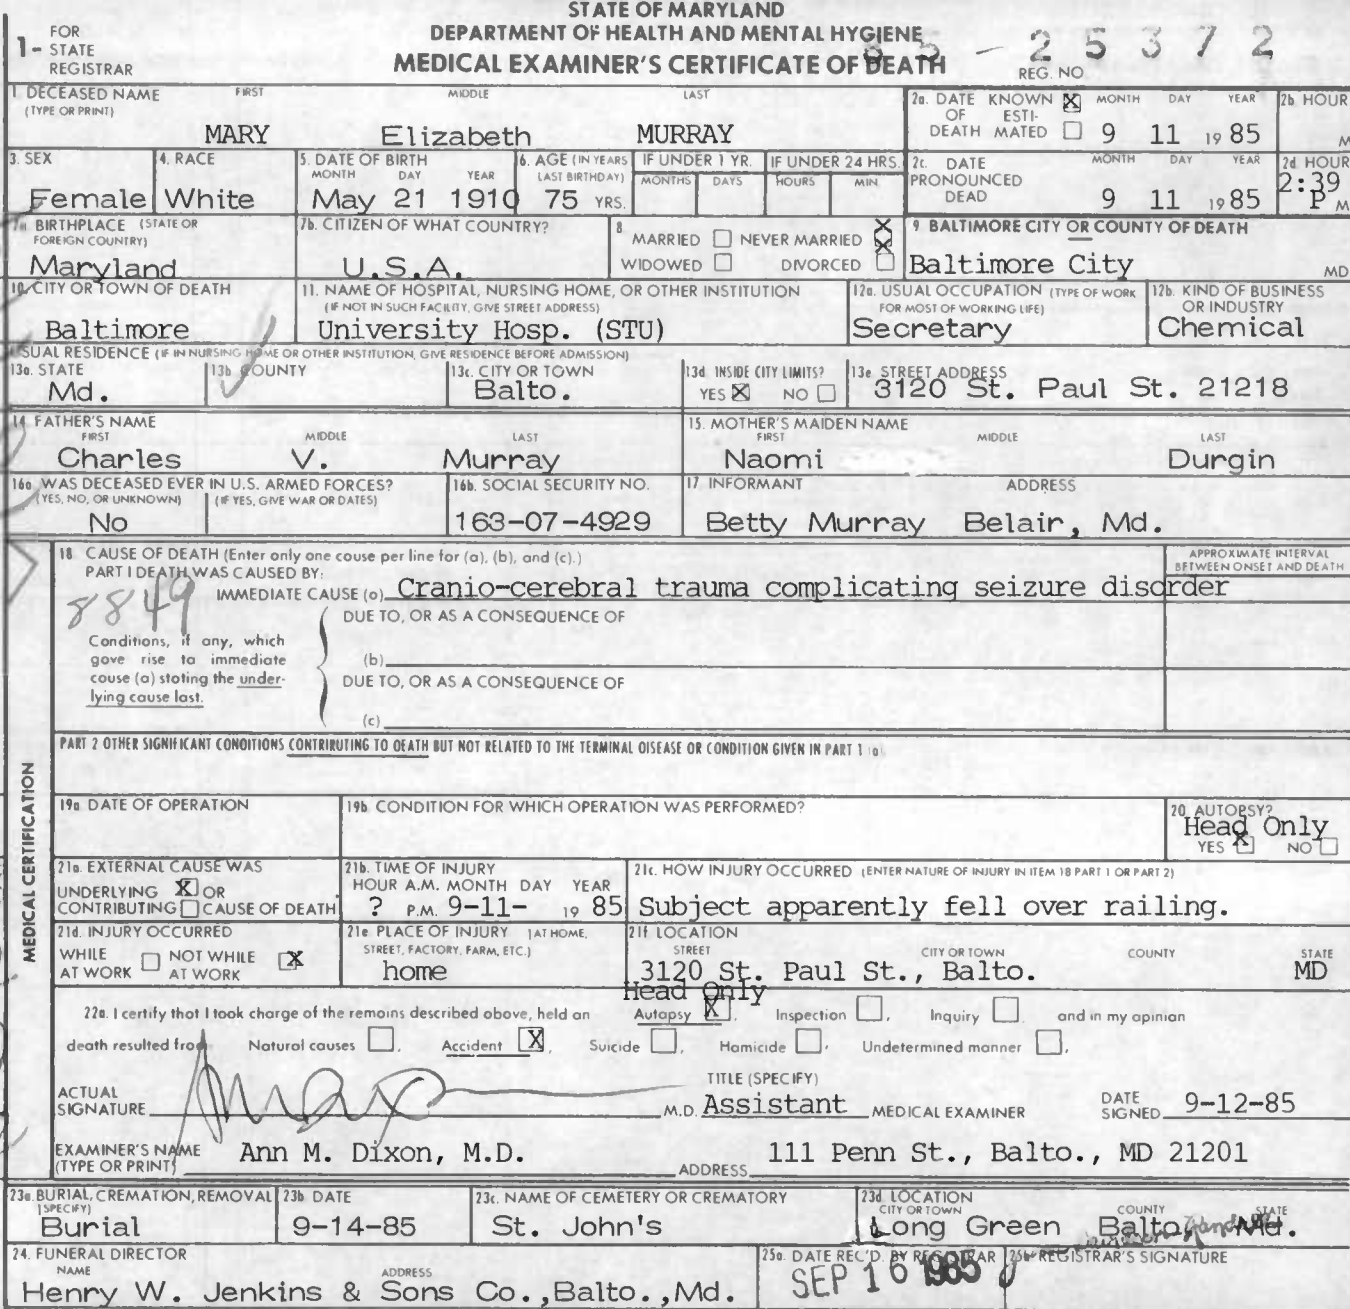 STATE OF MARYLAND
DEPARTMENT OF HEALTH AND MENTAL HYGIENE
MEDICAL EXAMINER'S CERTIFICATE OF DEATH
FOR
1- STATE
REGISTRAR
85-25372
REG. NO.
1. DECEASED NAME FIRST MIDDLE LAST
(TYPE OR PRINT)
MARY Elizabeth MURRAY
2a. DATE KNOWN X MONTH DAY YEAR
OF ESTI-
DEATH MATED 9 11 1985
2b HOUR
M
3. SEX
Female
4. RACE
White
5. DATE OF BIRTH
MONTH DAY YEAR
May 21 1910
6. AGE (IN YEARS
LAST BIRTHDAY)
75 YRS.
IF UNDER 1 YR.
MONTHS DAYS
IF UNDER 24 HRS.
HOURS MIN
2c. DATE MONTH DAY YEAR
PRONOUNCED
DEAD 9 11 1985
2d HOUR
2:39
P M
7a BIRTHPLACE (STATE OR
FOREIGN COUNTRY)
Maryland
7b. CITIZEN OF WHAT COUNTRY?
U.S.A.
8
MARRIED NEVER MARRIED X
WIDOWED DIVORCED
9 BALTIMORE CITY OR COUNTY OF DEATH
Baltimore City MD
10. CITY OR TOWN OF DEATH
Baltimore
11. NAME OF HOSPITAL, NURSING HOME, OR OTHER INSTITUTION
(IF NOT IN SUCH FACILITY, GIVE STREET ADDRESS)
University Hosp. (STU)
12a. USUAL OCCUPATION (TYPE OF WORK
FOR MOST OF WORKING LIFE)
Secretary
12b. KIND OF BUSINESS
OR INDUSTRY
Chemical
USUAL RESIDENCE (IF IN NURSING HOME OR OTHER INSTITUTION, GIVE RESIDENCE BEFORE ADMISSION)
13a. STATE
Md.
13b COUNTY
13c. CITY OR TOWN
Balto.
13d INSIDE CITY LIMITS?
YES X NO
13e STREET ADDRESS
3120 St. Paul St. 21218
14 FATHER'S NAME
FIRST MIDDLE LAST
Charles V. Murray
15. MOTHER'S MAIDEN NAME
FIRST MIDDLE LAST
Naomi Durgin
16a WAS DECEASED EVER IN U.S. ARMED FORCES?
(YES, NO, OR UNKNOWN) (IF YES, GIVE WAR OR DATES)
No
16b. SOCIAL SECURITY NO.
163-07-4929
17 INFORMANT ADDRESS
Betty Murray Belair, Md.
MEDICAL CERTIFICATION
18 CAUSE OF DEATH (Enter only one cause per line for (a), (b), and (c).)
PART I DEATH WAS CAUSED BY:
APPROXIMATE INTERVAL
BETWEEN ONSET AND DEATH
8849
IMMEDIATE CAUSE (a) Cranio-cerebral trauma complicating seizure disorder
DUE TO, OR AS A CONSEQUENCE OF
Conditions, if any, which
gave rise to immediate
cause (a) stating the under-
lying cause last.
(b)
DUE TO, OR AS A CONSEQUENCE OF
(c)
PART 2 OTHER SIGNIFICANT CONDITIONS CONTRIBUTING TO DEATH BUT NOT RELATED TO THE TERMINAL DISEASE OR CONDITION GIVEN IN PART 1 (a)
19a DATE OF OPERATION
19b CONDITION FOR WHICH OPERATION WAS PERFORMED?
20 AUTOPSY?
Head Only
YES X NO
21a. EXTERNAL CAUSE WAS
UNDERLYING X OR
CONTRIBUTING CAUSE OF DEATH
21b. TIME OF INJURY
HOUR A.M. MONTH DAY YEAR
? P.M. 9-11- 1985
21c. HOW INJURY OCCURRED (ENTER NATURE OF INJURY IN ITEM 18 PART 1 OR PART 2)
Subject apparently fell over railing.
21d. INJURY OCCURRED
WHILE NOT WHILE X
AT WORK AT WORK
21e PLACE OF INJURY (AT HOME,
STREET, FACTORY, FARM, ETC.)
home
21f LOCATION
STREET CITY OR TOWN COUNTY STATE
3120 St. Paul St., Balto. MD
Head Only
22a. I certify that I took charge of the remains described above, held an Autopsy X, Inspection, Inquiry and in my opinion
death resulted from Natural causes, Accident X, Suicide, Homicide, Undetermined manner.
ACTUAL
SIGNATURE
M.D.
TITLE (SPECIFY)
Assistant MEDICAL EXAMINER
DATE
SIGNED 9-12-85
EXAMINER'S NAME
(TYPE OR PRINT) Ann M. Dixon, M.D.
ADDRESS 111 Penn St., Balto., MD 21201
23a. BURIAL, CREMATION, REMOVAL
(SPECIFY)
Burial
23b DATE
9-14-85
23c. NAME OF CEMETERY OR CREMATORY
St. John's
23d LOCATION
CITY OR TOWN COUNTY STATE
Long Green Balto. Md.
24. FUNERAL DIRECTOR
NAME ADDRESS
Henry W. Jenkins & Sons Co.,Balto.,Md.
25a. DATE REC'D. BY REGISTRAR
SEP 16 1985
25b REGISTRAR'S SIGNATURE